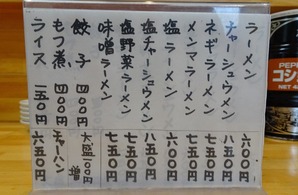 ラーメン 六〇〇円
チャーシューメン 八五〇円
ネギラーメン 七五〇円
メンマラーメン 七五〇円
塩ラーメン 六〇〇円
塩チャーシューメン 八五〇円
塩野菜ラーメン 七五〇円
味噌ラーメン 七五〇円
餃子 四〇〇円
もつ煮 四〇〇円
ライス
大盛 一〇〇円増
チャーハン 六五〇円
PEPP
コショ